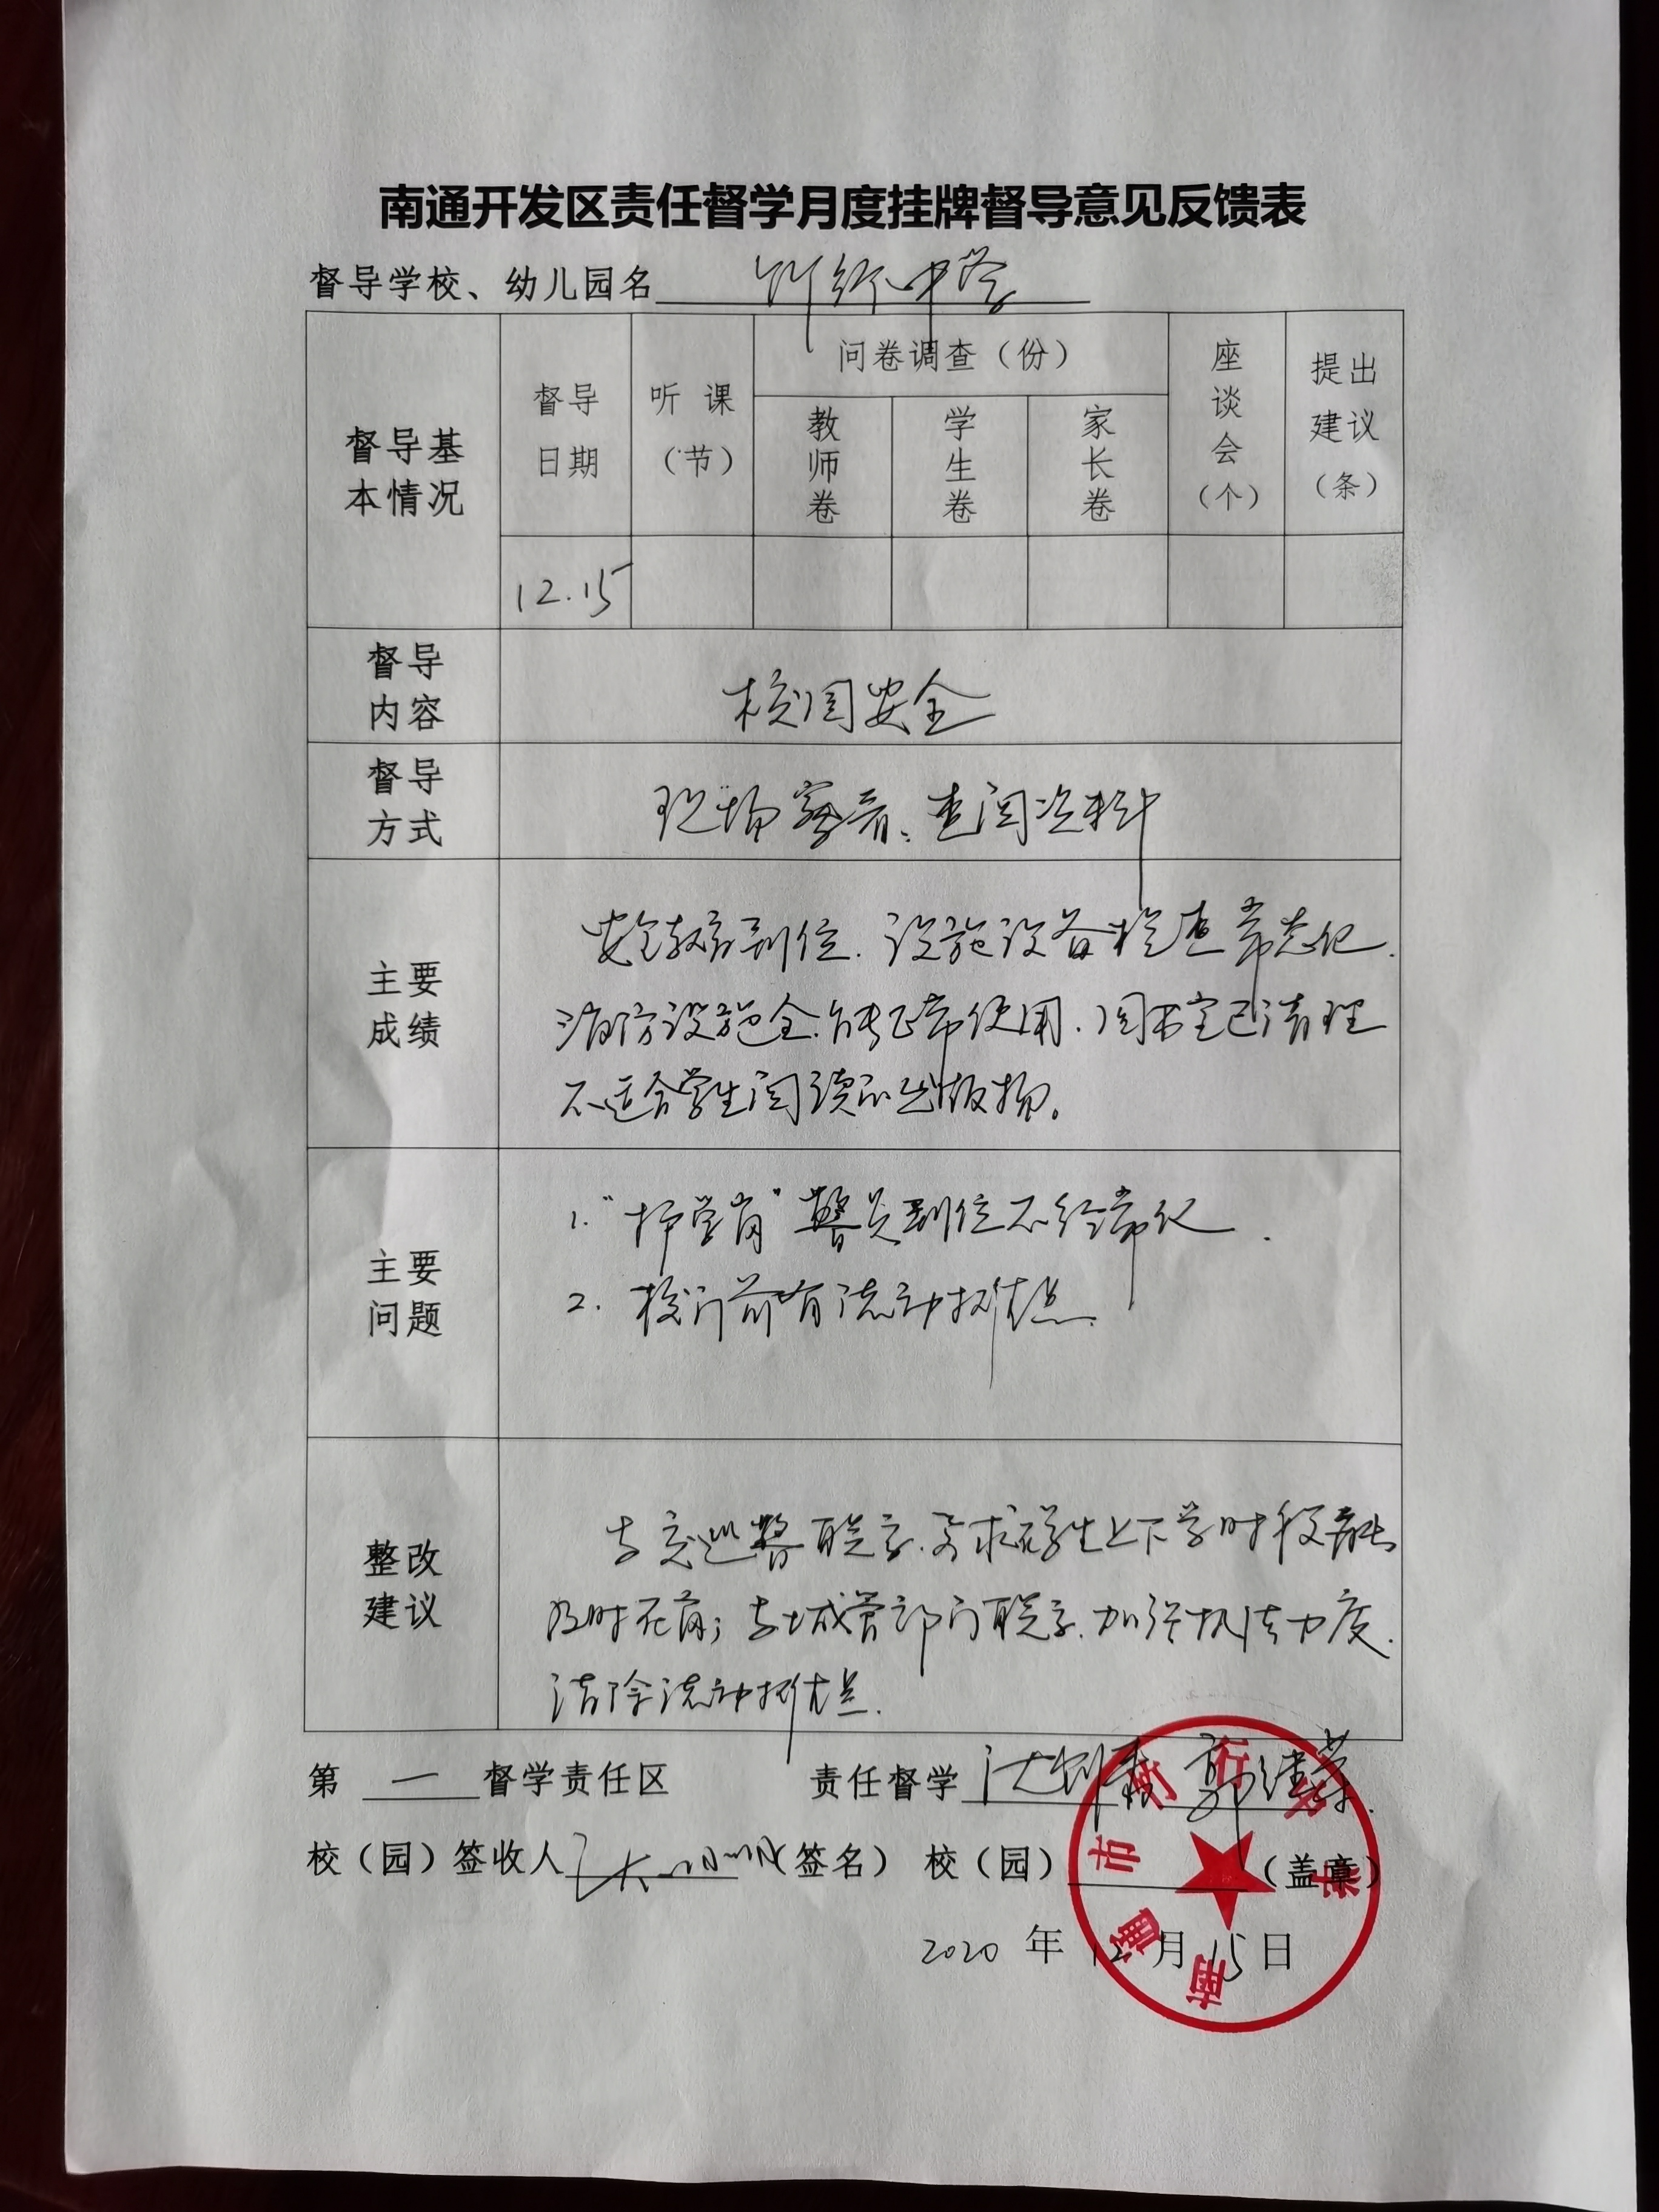 南通开发区责任督学月度挂牌督导意见反馈表
督导学校、幼儿园名 竹行中学
督导基本情况
督导日期
听课（节）
问卷调查（份）
教师卷
学生卷
家长卷
座谈会（个）
提出建议（条）
12.15
督导内容
校园安全
督导方式
现场察看、查阅资料
主要成绩
安全教育到位.设施设备检查常态化.
消防设施全.能正常使用.图书室已清理
不适合学生阅读的出版物。
主要问题
1."护学岗"警员到位不经常化.
2.校门前有流动摊点.
整改建议
与交巡警联系.要求在学生上下学时段能
及时在岗；与城管部门联系.加强执法力度.
清除流动摊点.
第 一 督学责任区 责任督学
校（园）签收人（签名） 校（园）（盖章）
2020年12月15日
南通市竹行中学